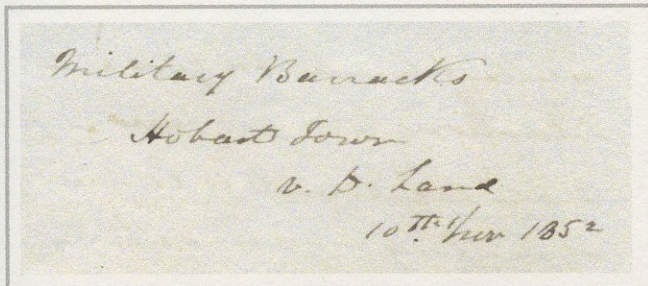 Military Barracks
Hobart Town
V. D. Land
10th 1852